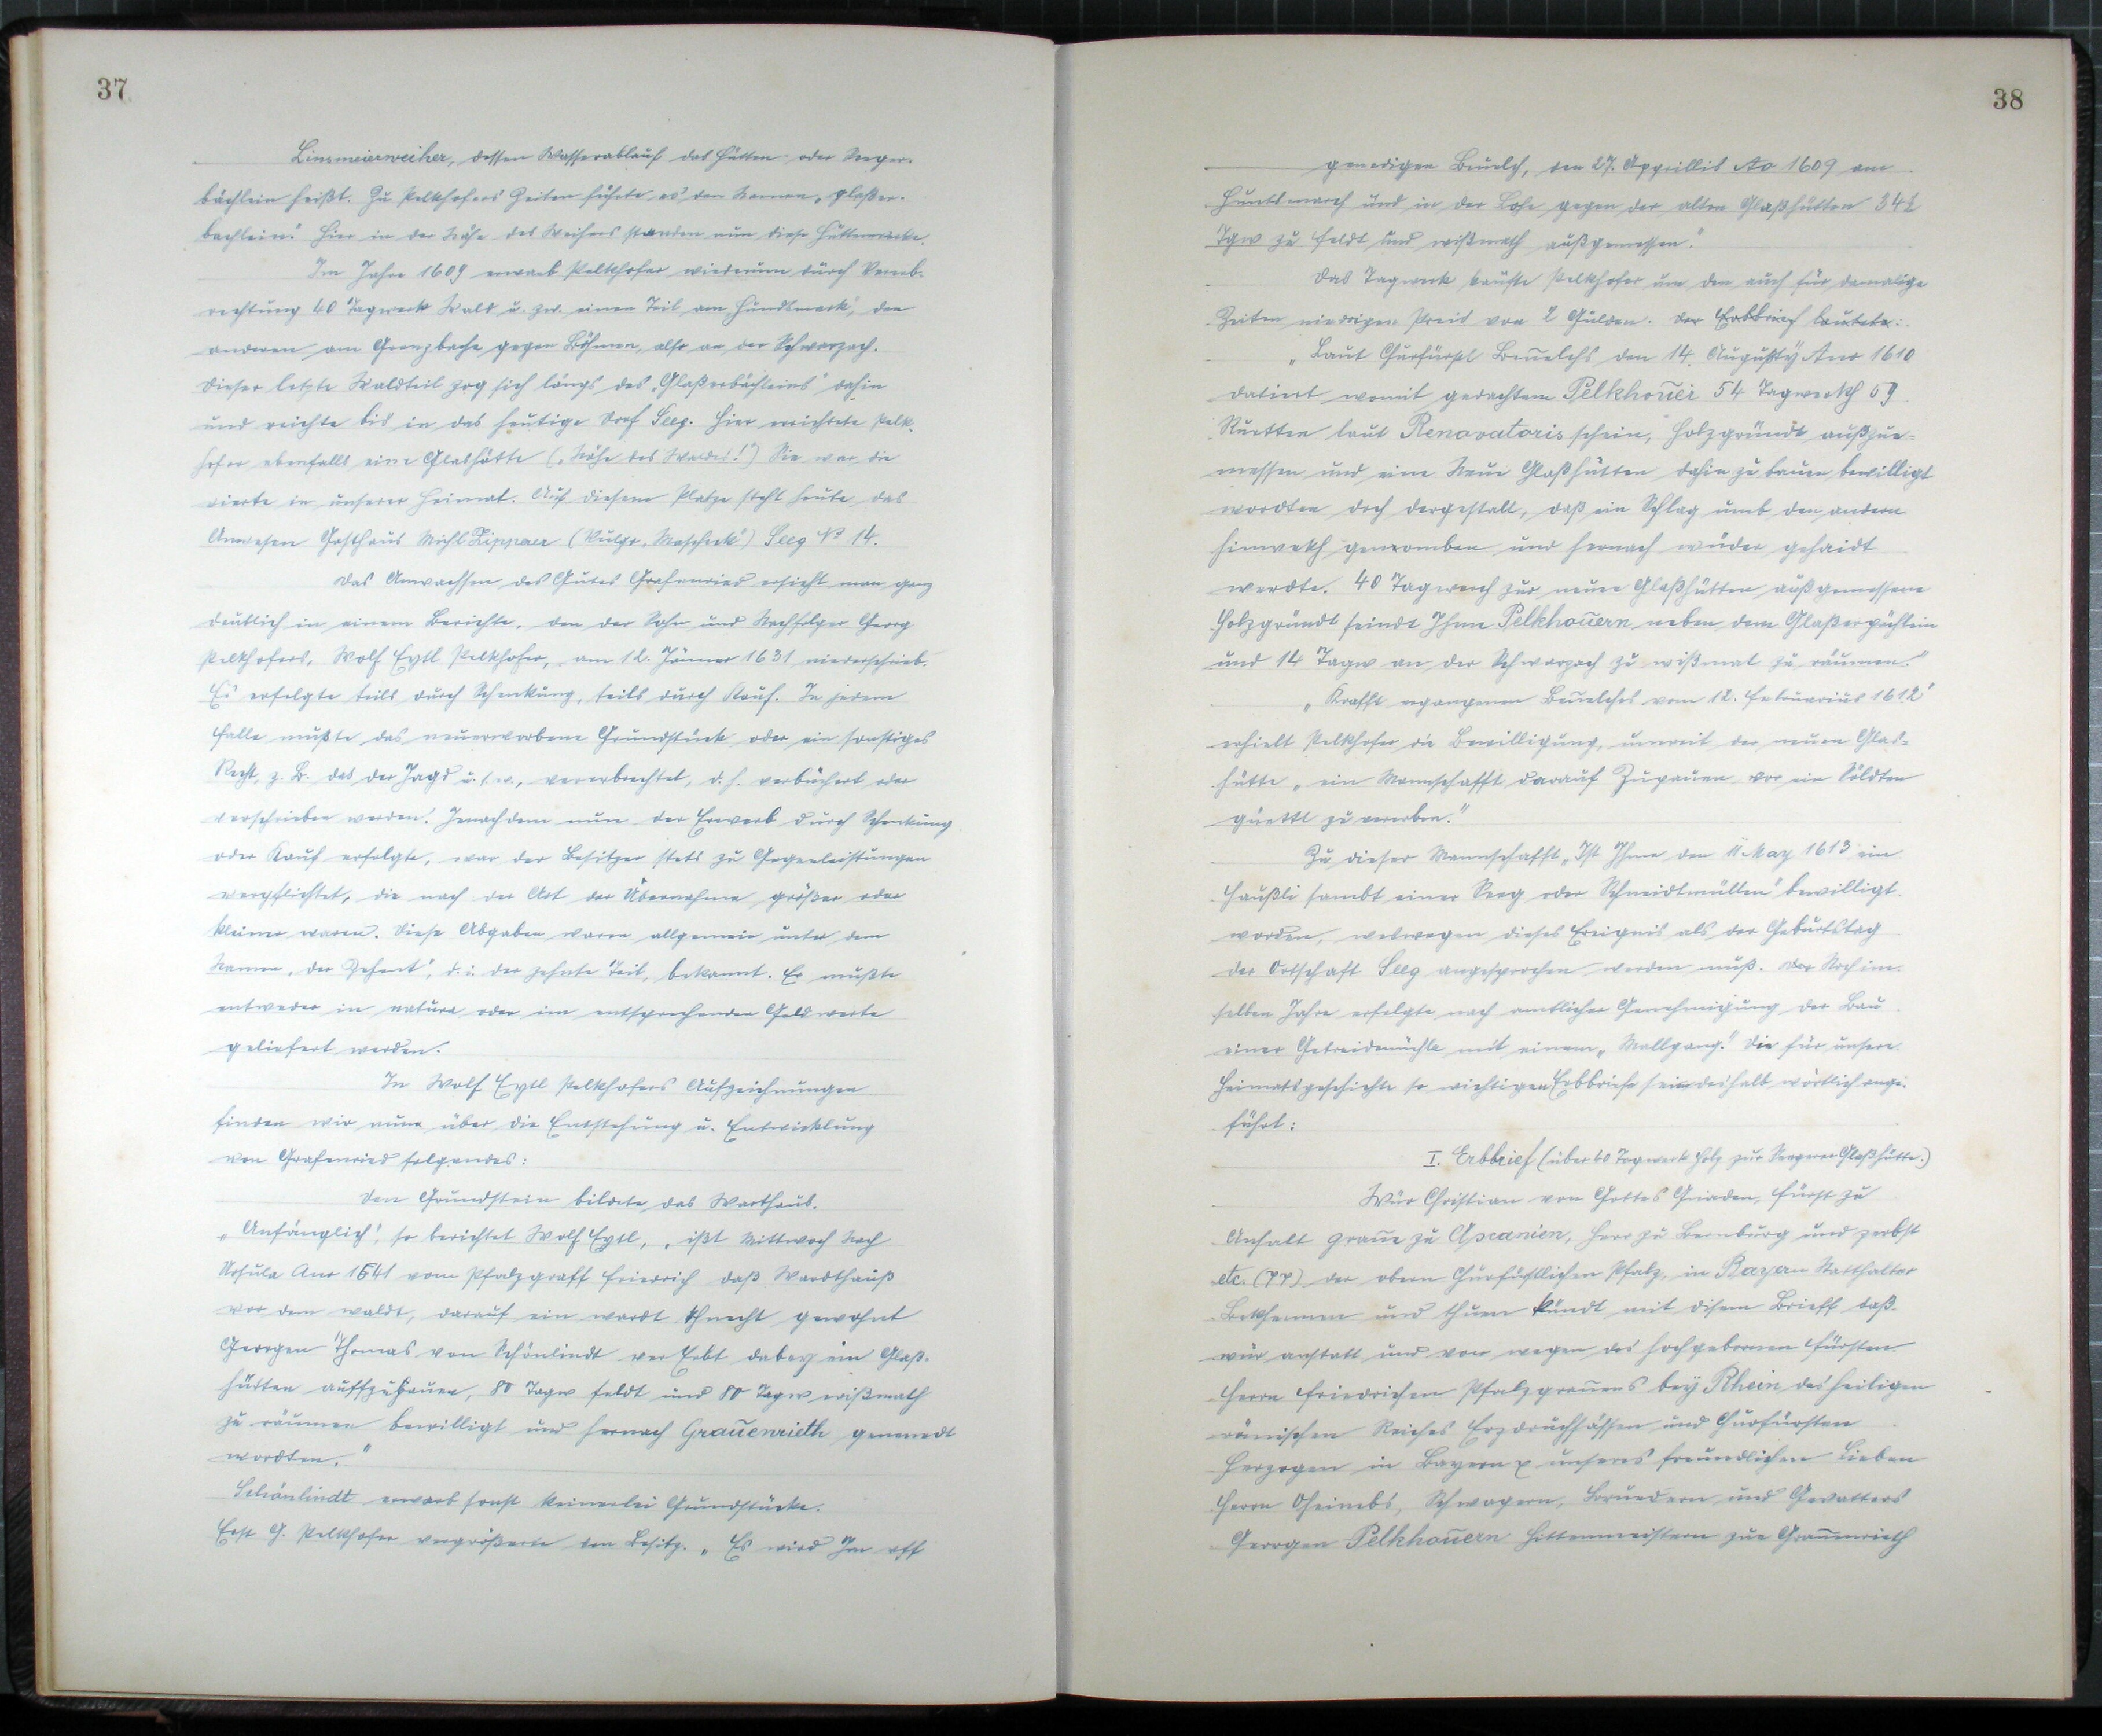 37
Linsmeierweiher, dessen Wasserablauf das Hütten- oder Seeger-
bächlein heißt. Zu Pelkhofers Zeiten führte es den Namen „glaßer-
bachlein." Hier in der Nähe des Weihers standen nun diese Hüttenwerke.
Im Jahre 1609 erwarb Pelkhofer wiederum durch Vererb-
rechtung 40 Tagwerk Wald u. zw. einen Teil am „Hundsmark", den
anderen am Grenzbache gegen Böhmen, also an der Schwarzach.
Dieser letzte Waldteil zog sich längs des „Glaßerbächleins" dahin
und reichte bis in das heutige Dorf Seeg. Hier errichtete Pelk-
hofer ebenfalls eine Glashütte („Nähe des Waldes!") Sie war die
vierte in unserer Heimat. Auf diesem Platze steht heute das
Anwesen Gasthaus Michl Zippaer (Vulgo „Mascherk") Seeg № 14.
Das Anwachsen des Gutes Grafenried ersieht man ganz
deutlich in einem Berichte, den der Sohn und Nachfolger Georg
Pelkhofers, Wolf Eytl Pelkhofer, am 12. Jänner 1631 niederschrieb.
Es erfolgte teils durch Schenkung, teils durch Kauf. In jedem
Falle mußte das neuerworbene Grundstück oder ein sonstiges
Recht, z. B. das der Jagd u. s. w., vererbrechtet, d. h. verbüchert oder
verschrieben werden. Jenachdem nun der Erwerb durch Schenkung
oder Kauf erfolgte, war der Besitzer stets zu Gegenleistungen
verpflichtet, die nach der Art der Übernahme größer oder
kleiner waren. Diese Abgaben waren allgemein unter dem
Namen „der Zehent", d. i. der zehnte Teil, bekannt. Er mußte
entweder in natura oder im entsprechenden Geldwerte
geliefert werden.
In Wolf Eytl Pelkhofers Aufzeichnungen
finden wir nun über die Entstehung u. Entwicklung
von Grafenried folgendes:
Den Grundstein bildete das Warthaus.
„Anfänglich", so berichtet Wolf Eytl, „ißt Mittwoch Nach
Ursula Ano 1541 vom Pfalzgraff Friedrich daß Wardthauß
vor dem waldt, darauf ein wardt Khnecht gewohnt
Georgen Thomas von Schönlindt ver Erbt dabey ein Glaß-
hütten auffzubauen, 80 Tagw feldt und 80 Tagw wißmath
zu räumen bewilligt und hernach Graüenrieth genenndt
wordten."
Schönlindt erwarb sonst keinerlei Grundstücke.
Erst G. Pelkhofer vergrößerte den Besitz. „Es wird Im auff
38
genedigen Beuelch, den 27. Apprillis Ao 1609 am
Huntsmarch und in der Lohe gegen der alten Glaßhütten 34½
Tgw zu feldt und wißmath außgemessen."
Das Tagwerk kaufte Pelkhofer um den auch für damalige
Zeiten niedrigen Preis von 2 Gulden. Der Erbbrief lautete:
„Laut Churfürstl Beuelchs den 14. Augusty Ano 1610
datiert womit gedachtem Pelkhouer 54 Tagwerkh 59
Ruetten laut Renovatoris schein, Holzgründt außzue-
messen und eine Neue Glaßhütten dahin zu bauen bewilligt
wordten doch dergestalt, daß ein Schlag umb den andern
hinwekh genomben und hernach wüder gehaidt
werdte. 40 Tagwerch zur neuen Glaßhütten außgemessene
Holzgründt seindt Ihme Pelkhouern neben dem Glaßerpächlein
und 14 Tagw an der Schwarzach zu wißmat zu räumen."
„Krafft ergangenen Beuelchs vom 12. Februarius 1612"
erhielt Pelkhofer die Bewilligung, unweit der neuen Glas-
hütte „ein Mannschafft darauf Zupauen vor ein Söldten
güettl zu vererben."
Zu dieser Mannschafft „Ist Ihme den 11 May 1613 ein
Haußli sambt einer Seeg oder Schneidtmüllen" bewilligt
worden, weswegen dieses Ereignis als der Geburtstag
der Ortschaft Seeg angesprochen werden muß. Der Noch im-
selben Jahre erfolgte nach amtlicher Genehmigung der Bau
einer Getreidemühle mit einem „Mallgang." Die für unsere
Heimatsgeschichte so wichtigen Erbbriefe seien deshalb wörtlich ange-
führt:
I. Erbbrief (über 60 Tagwerk Holz zur Seegerer Glaßhütte.)
Wür Christian von Gottes Gnaden, Fürst zu
Anhalt graue zu Ascanien, Herr zu Bernburg und zerbst
etc. der obern Churfürstlichen Pfalz, in Bayern Statthalter
Bekhennen und thuen kundt mit disem Brieff daß
wür anstatt und von wegen des hochgebornen Fürsten
Herrn Friedrichen Pfalzgrauens bey Rhein des heiligen
römischen Reiches Erzdruchsässen und Churfürsten
Herzogen in Bayern unseres freundlichen Lieben
Herrn Oheimbs, Schwagern, Bruedern und Gevatters
Georgen Pelkhouern Hüttenmeistern zue Grauenrieth